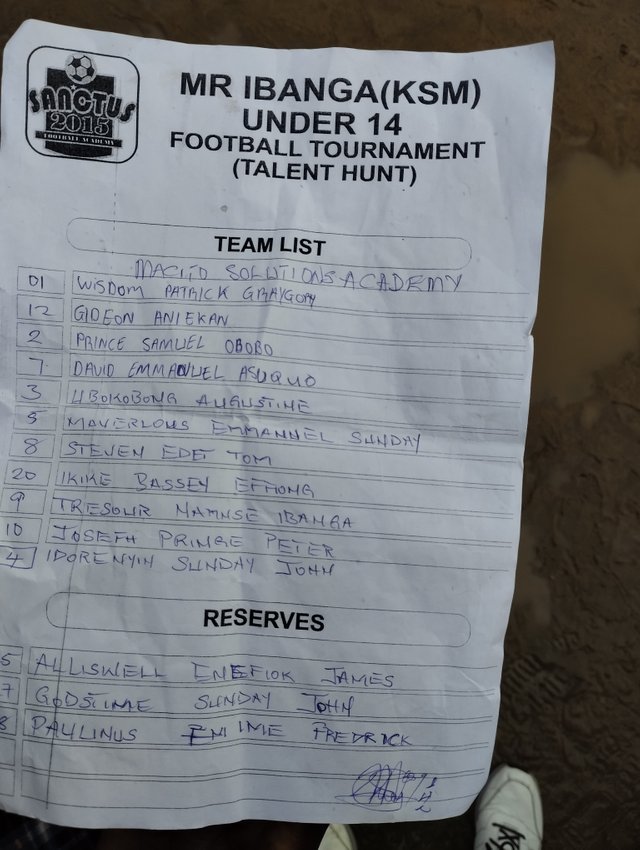 SANCTUS
2015
FOOTBALL ACADEMY
MR IBANGA(KSM)
UNDER 14
FOOTBALL TOURNAMENT
(TALENT HUNT)
TEAM LIST
SOLUTIONS ACADEMY
01 WISDOM PATRICK GRAYGORY
12 GIDEON ANIEKAN
2 PRINCE SAMUEL OBOBO
7 DAVID EMMANUEL ASUQUO
3 UBOKOBONG AUGUSTINE
5 MAVERLOUS EMMANUEL SUNDAY
8 STEVEN EDET TOM
20 IKIKE BASSEY EFFIONG
9 TRESOUR IBANGA
10 JOSEPH PRINCE PETER
4 IDORENYIN SUNDAY JOHN
RESERVES
5 ALLISWELL ENEFIOK JAMES
7 GODSTIME SUNDAY JOHN
8 PAULINUS ENIIME FREDRICK